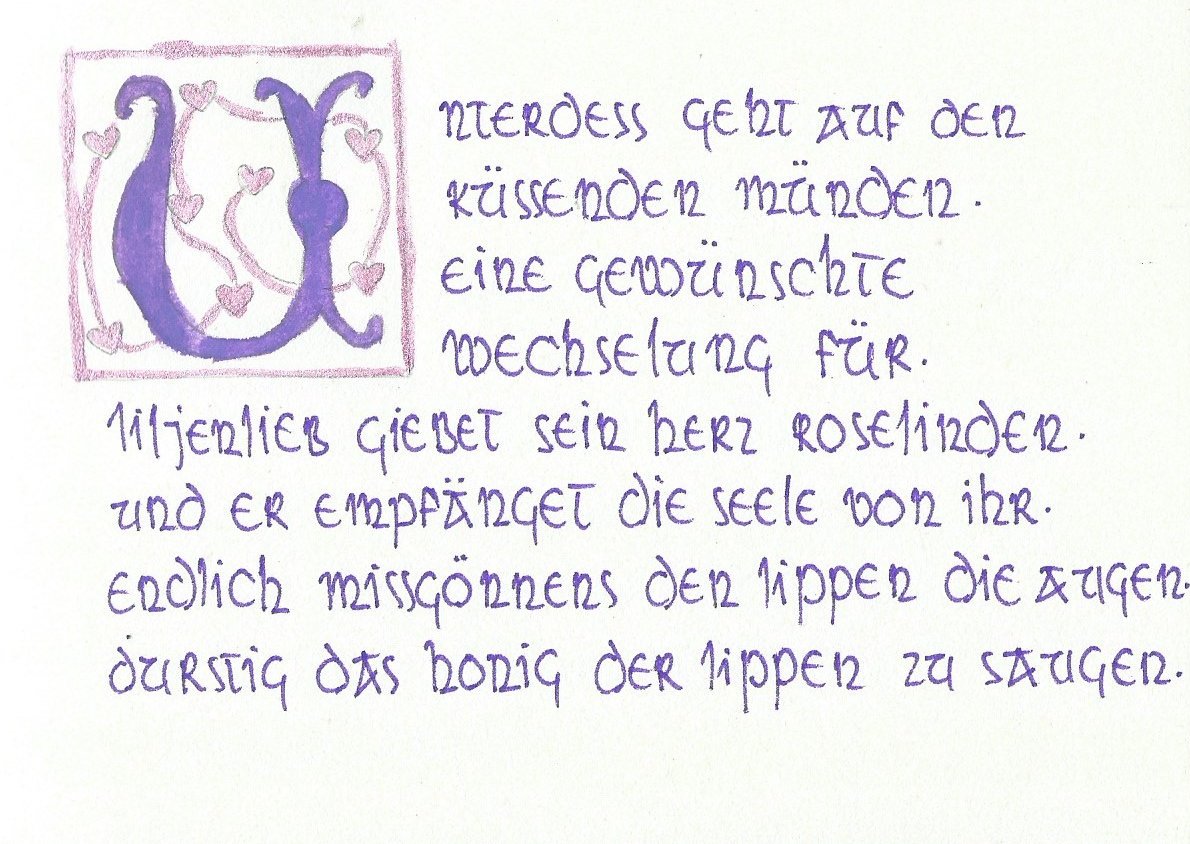 Unterdess geht auf den
küssenden münden.
eine gewünschte
wechselung für.
liljenlieb giebet sein herz roselinden.
und er empfänget die seele von ihr.
endlich missgönnens den lippen die augen.
durstig das honig der lippen zu saugen.